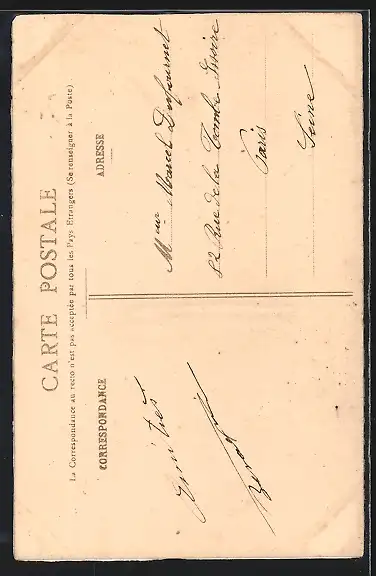 CARTE POSTALE
La Correspondance au recto n'est pas acceptée par tous les Pays Etrangers (Se renseigner à la Poste)
CORRESPONDANCE
Amitiés
ADRESSE
Mʳ Marcel
82 Rue de la Tombe Issoire
Paris
Seine